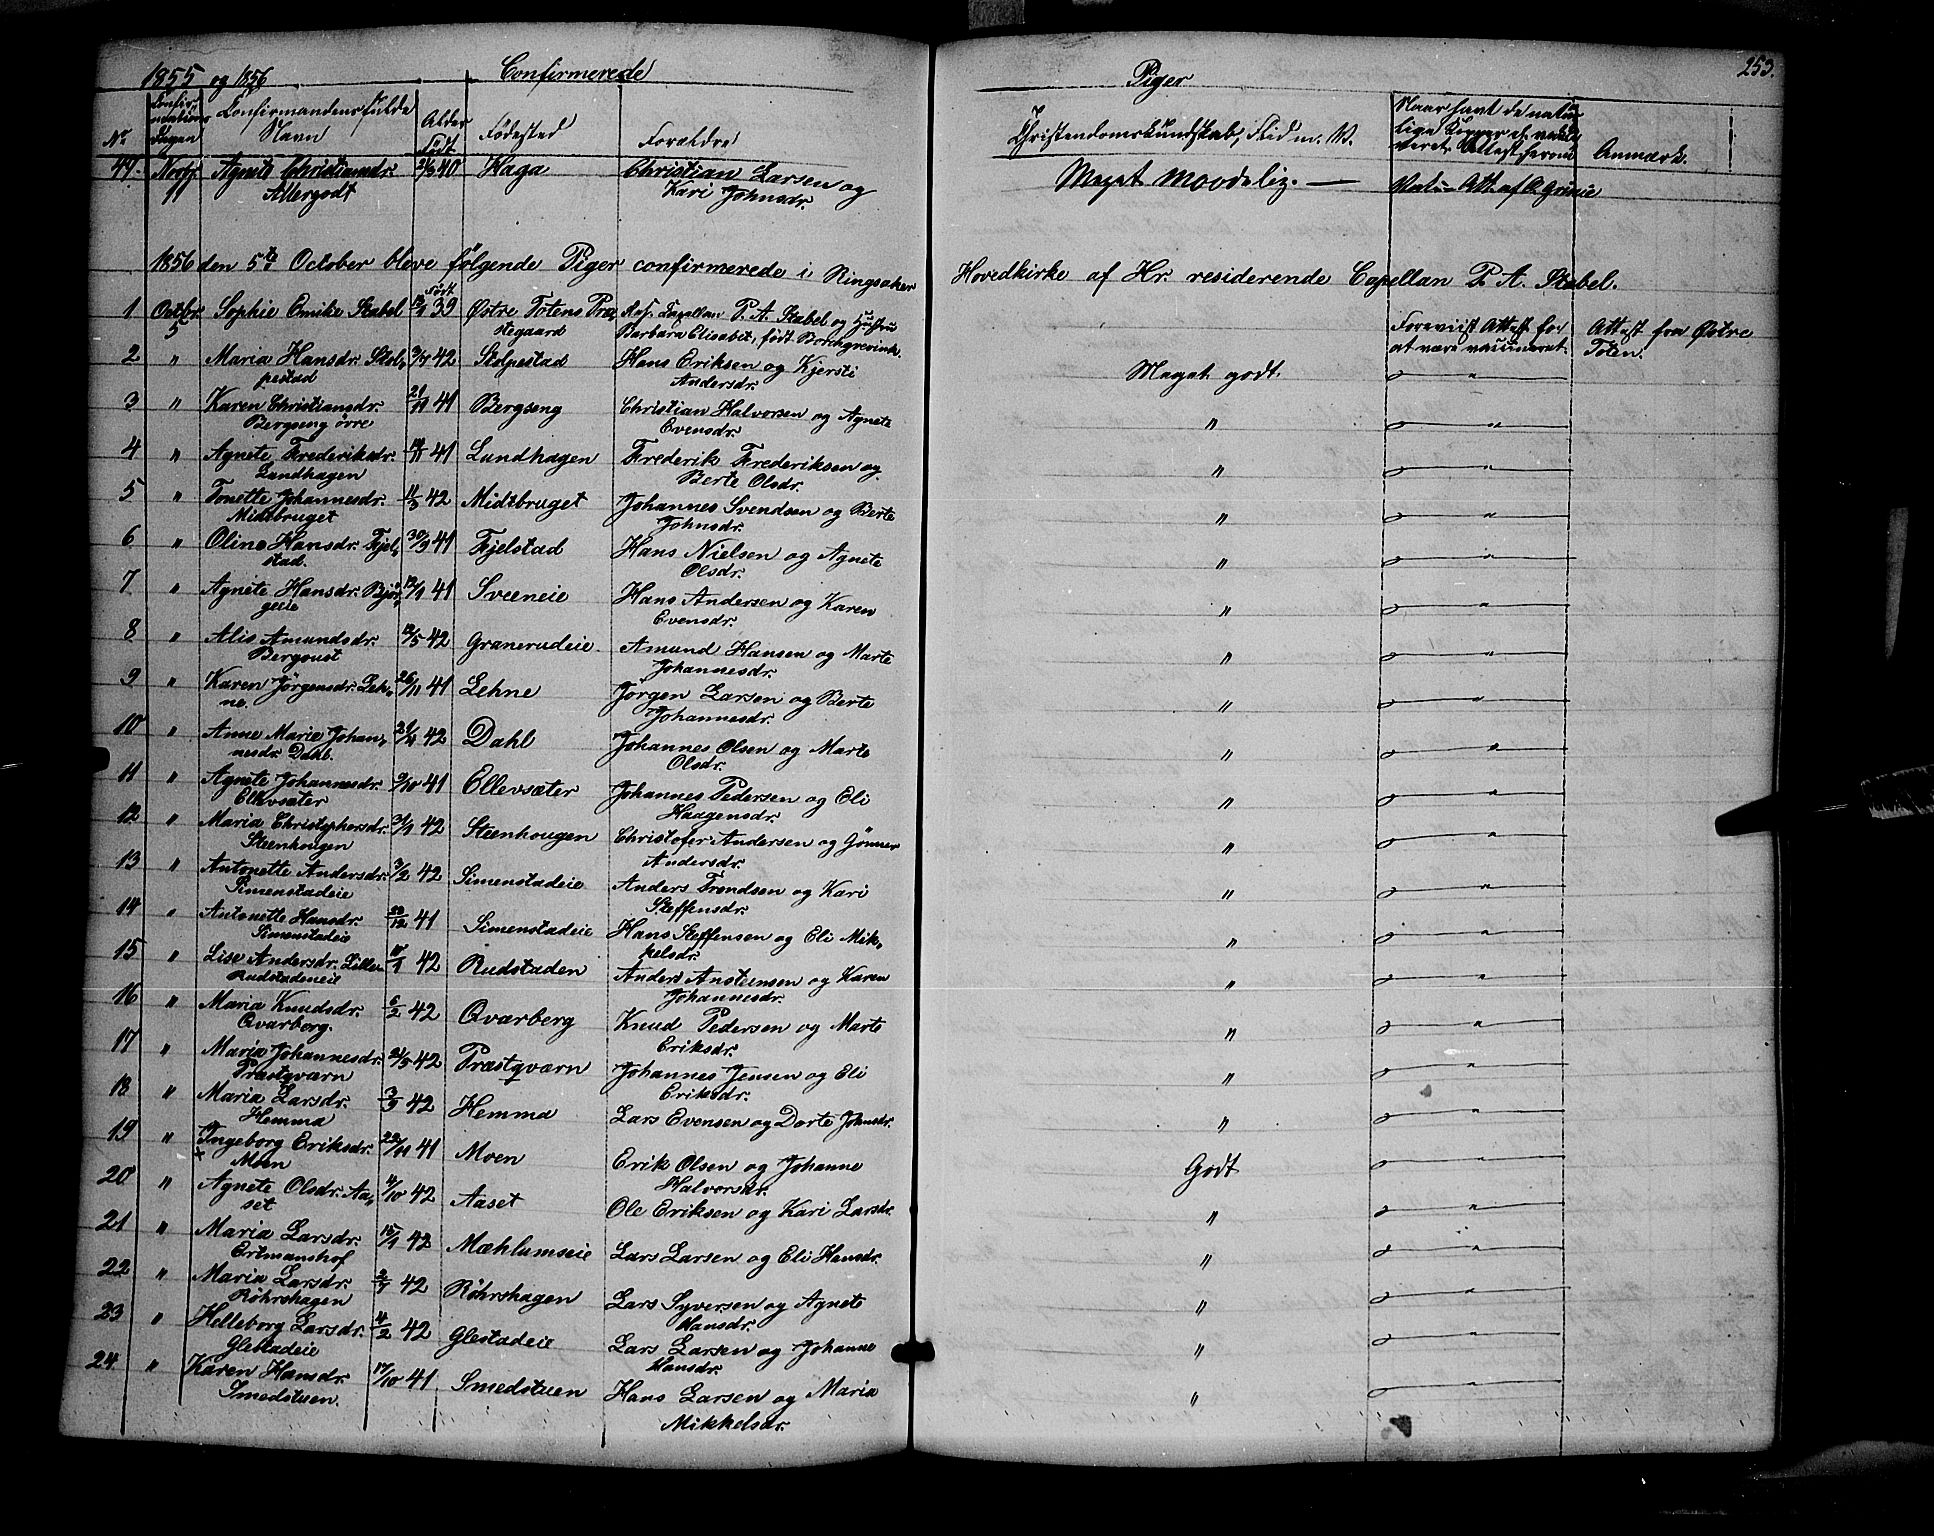 1855 og 1856 Confirmerede Piger 253.
No Confirmations Dagen Confirmandens fulde Navn Alder Født Fødested Forældre Christendomskundskab, Flid m. V. Naar havt de naturlige Kopper el. vaccineret Attest herom Anmærk.
49. Novbr 11 Agnete Christiansdr. 40 Haga Christian Larsen og Maget Maadelig. —
Allergodt Kari Johnsdr.
1856 den 5te October bleve følgende Piger confirmerede i Ringsaker Hovedkirke af Hr. residerende Capellan P. A. Stabel.
Født
1 Octbr 5 Sophie Emike Stabel 39 Østre Totens Præ- Res. Capellan P. A. Stabel og Hustru Foreviist Attest for Attest fra Østre
stegaard Barbara Elisabet, født Borchgrevink. at være vaccineret. Toten.
2 " Maria Hansdr. Stol- 42 Stolpestad Hans Eriksen og Kjersti Meget godt. "
pestad Andersdr.
3 " Karen Christiansdr. 21/11 41 Bergseng Christian Halvorsen og Agnete " "
Bergseng øvre Evensdr.
4 " Agnete Frederiksdr. 41 Lundhagen Frederik Frederiksen og " "
Lundhagen Berte Olsdr.
5 " Tonette Johannesdr. 11/3 42 Midtbruget Johannes Svendsen og Berte " "
Midtbruget Johnsdr.
6 " Oline Hansdr. Fjel- 30/9 41 Fjelstad Hans Nielsen og Agnete " "
stad. Olsdr.
7 " Agnete Hansdr. Bjør- 41 Sveeneie Hans Andersen og Karen " "
geeie Evensdr.
8 " Alis Amundsdr. 12/5 42 Granerudeie Amund Hansen og Marte " "
Bergoust Johannesdr.
9 " Karen Jørgensdr. Leh- 26/11 41 Lehne Jørgen Larsen og Berte " "
ne. Johannesdr.
10 " Anne Marie Johan- 42 Dahl Johannes Olsen og Marte " "
nesdr. Dahl. Olsdr.
11 " Agnete Johannesdr. 9/10 41 Ellevsæter Johannes Pedersen og Eli " "
Ellevsæter Haagensdr.
12 " Maria Christophersdr. 42 Steenhougen Christofer Andersen og Gönner " "
Steenhougen Andersdr.
13 " Antonette Andersdr. 3/2 42 Simenstadeie Anders Trondsen og Kari " "
Simenstadeie Steffensdr.
14 " Antonette Hansdr. 12 41 Simenstadeie Hans Steffensen og Eli Mik- " "
Simenstadeie kelsdr.
15 " Lise Andersdr. Lille- 42 Rudstaden Anders Anstensen og Karen " "
Rudstadeneie Johannesdr.
16 " Maria Knudsdr. 6/2 42 Qvarberg Knud Pedersen og Marte " "
Qvarberg. Eriksdr.
17 " Maria Johannesdr. 42 Præstqværn Johannes Jensen og Eli " "
Præstqværn Eriksdr.
18 " Maria Larsdr. 3/9 42 Hemma Lars Evensen og Dorte Johnsdr. " "
Hemma
19 " Ingeborg Eriksdr. 22/11 41 Moen Erik Olsen og Johanne Godt "
× Moen Halvorsdr.
20 " Agnete Olsdr. Aa- 4/10 42 Aaset Ole Eriksen og Kari Larsdr. " "
set
21 " Maria Larsdr. 15/1 42 Mæhlumseie Lars Larsen og Eli Hansdr. " "
Ertmanshof
22 " Maria Larsdr. 42 Røhrshagen Lars Syversen og Agnete " "
Røhrshagen Hansdr.
23 " Helleborg Larsdr. 11/2 42 Glestadeie Lars Larsen og Johanne " "
Glestadeie Hansdr.
24 " Karen Hansdr. 17/10 41 Smedstuen Hans Larsen og Maria " "
Smedstuen. Mikkelsdr.